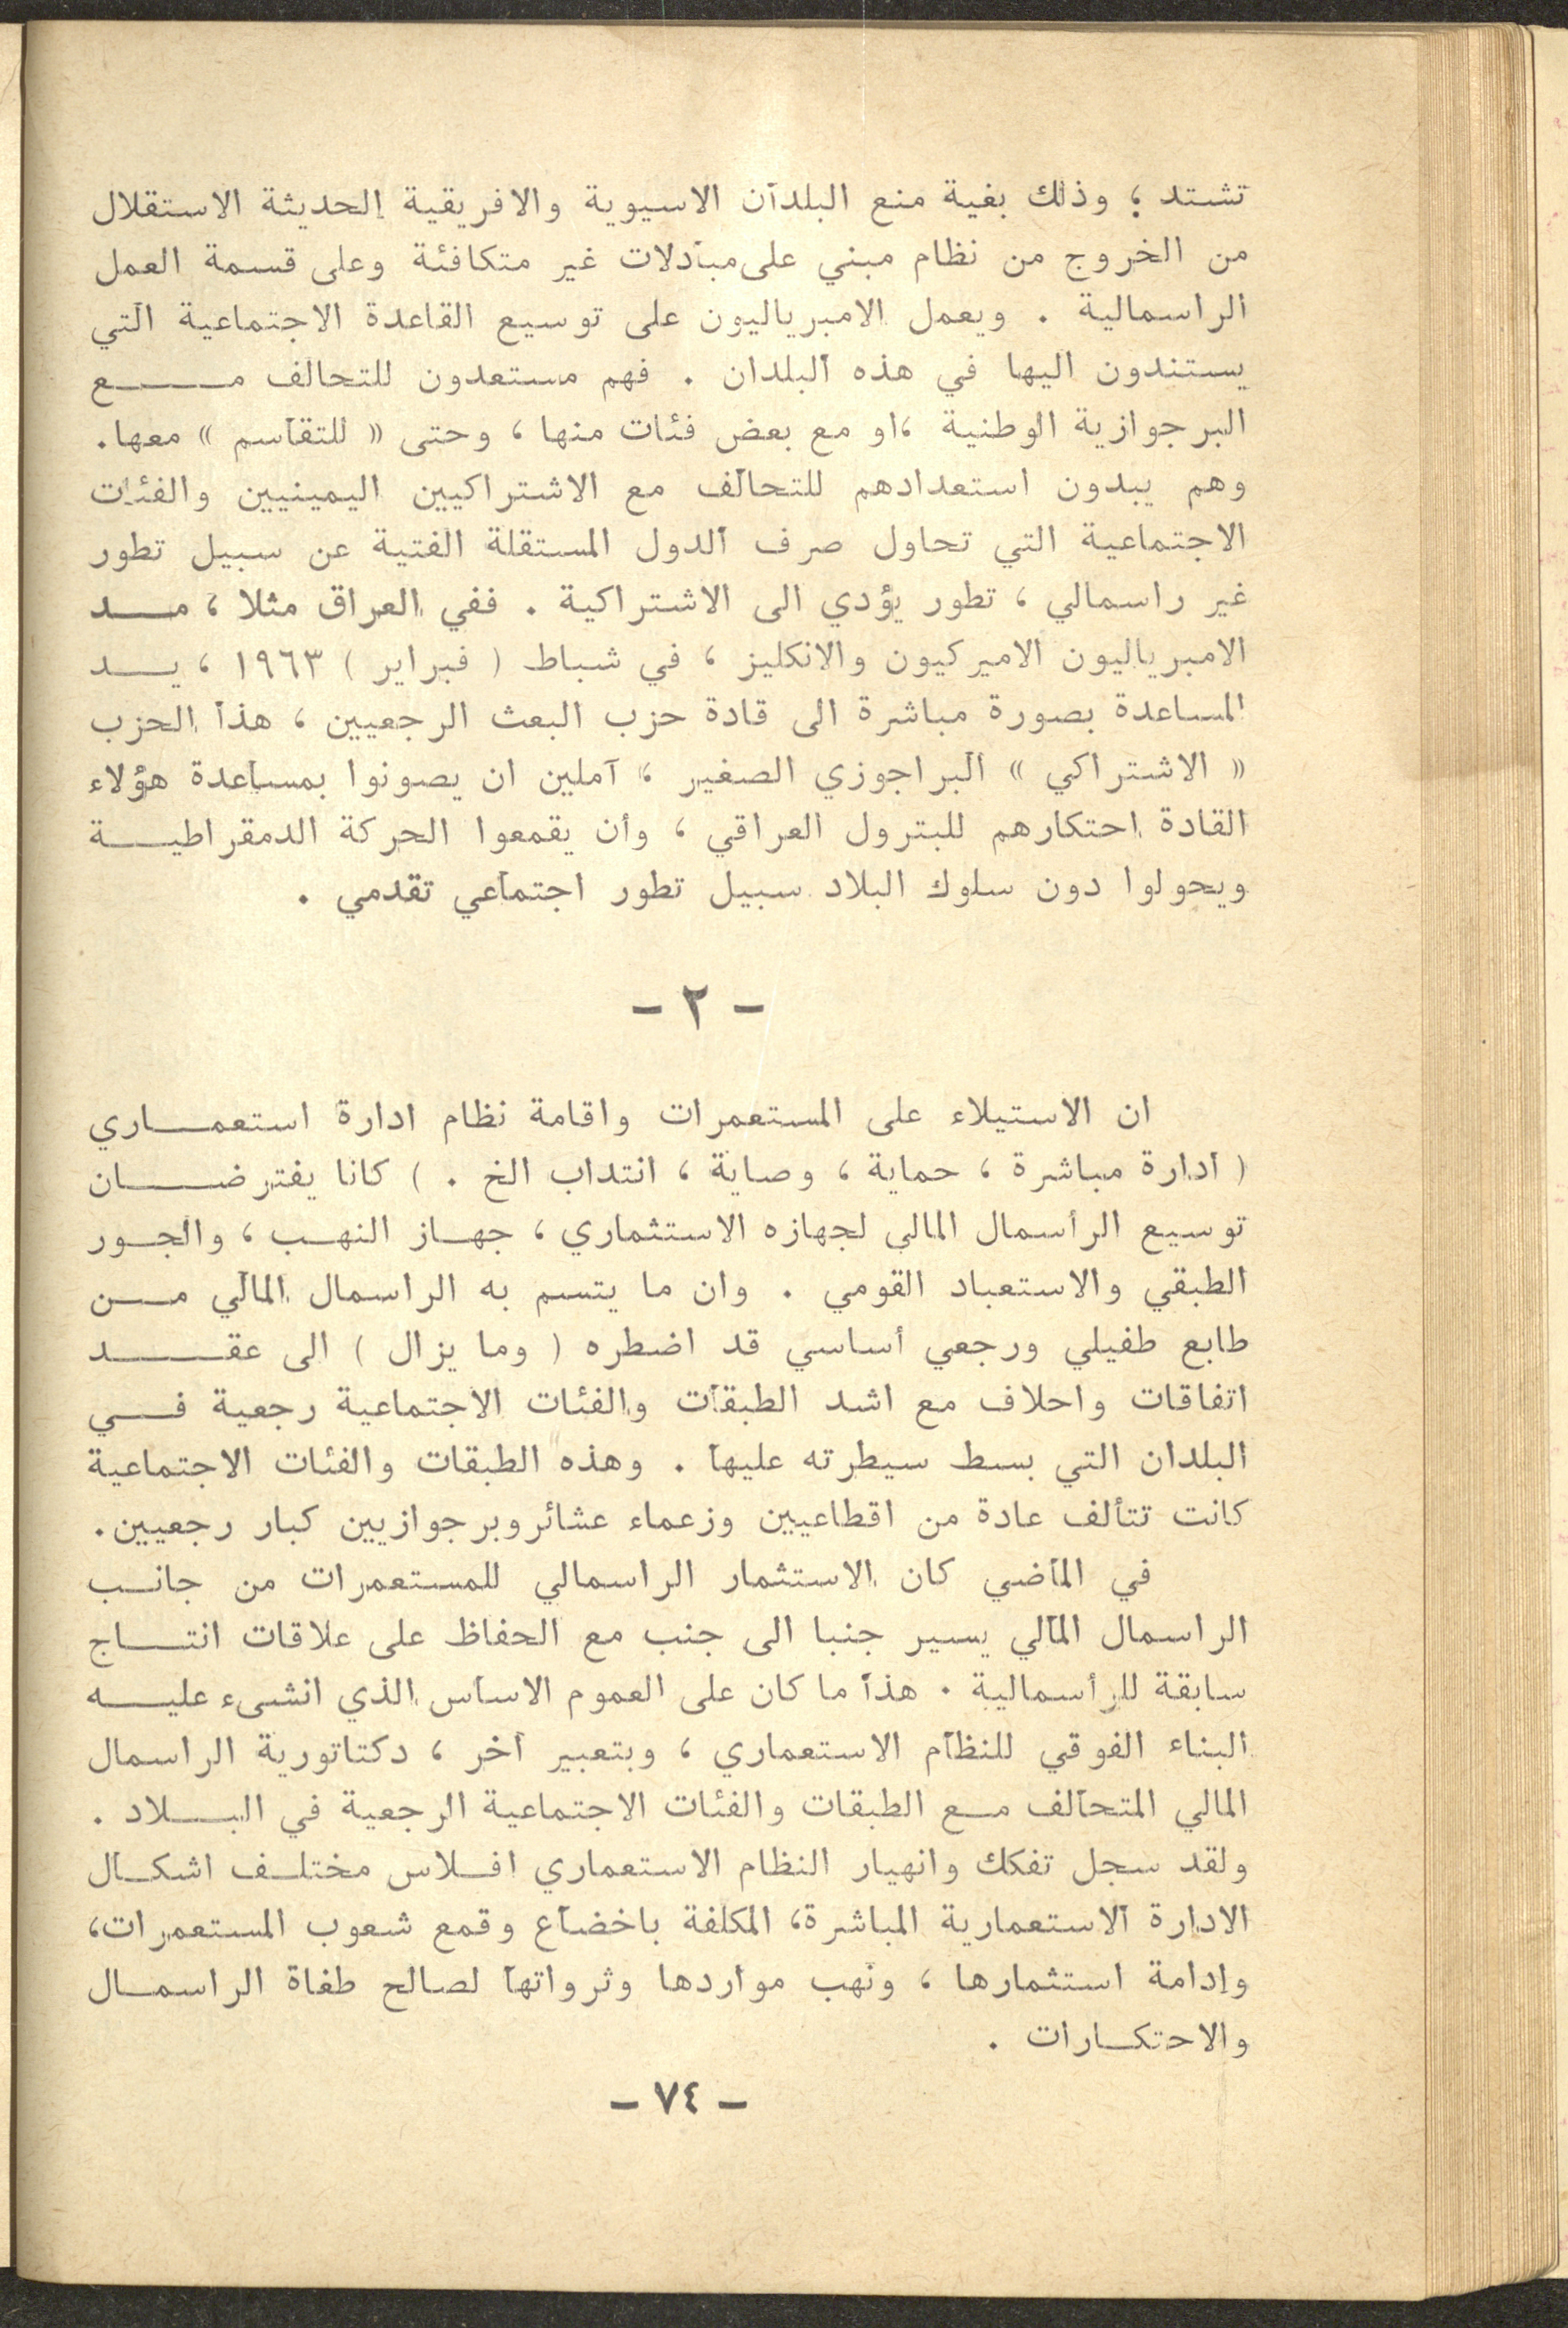 تشتد ؛ وذلك بغية منع البلدان الاسيوية والافريقية الحديثة الاستقلال
من الخروج من نظام مبني على مبادلات غير متكافئة وعلى قسمة العمل
الراسمالية . ويعمل الامبرياليون على توسيع القاعدة الاجتماعية التي
يستندون اليها في هذه البلدان . فهم مستعدون للتحالف مع
البرجوازية الوطنية ، او مع بعض فئات منها ، وحتى « للتقاسم » معها.
وهم يبدون استعدادهم للتحالف مع الاشتراكيين اليمينيين والفئات
الاجتماعية التي تحاول صرف الدول المستقلة الفتية عن سبيل تطور
غير راسمالي ، تطور يؤدي الى الاشتراكية . ففي العراق مثلا ، مد
الامبرياليون الاميركيون والانكليز ، في شباط ( فبراير ) ١٩٦٣ ، يد
المساعدة بصورة مباشرة الى قادة حزب البعث الرجعيين ، هذا الحزب
« الاشتراكي » البراجوزي الصغير ، آملين ان يصونوا بمساعدة هؤلاء
القادة احتكارهم للبترول العراقي ، وأن يقمعوا الحركة الدمقراطية
ويحولوا دون سلوك البلاد سبيل تطور اجتماعي تقدمي .
– ٢ –
ان الاستيلاء على المستعمرات واقامة نظام ادارة استعماري
( ادارة مباشرة ، حماية ، وصاية ، انتداب الخ . ) كانا يفترضان
توسيع الرأسمال المالي لجهازه الاستثماري ، جهاز النهب ، والجور
الطبقي والاستعباد القومي . وان ما يتسم به الراسمال المالي من
طابع طفيلي ورجعي أساسي قد اضطره ( وما يزال ) الى عقد
اتفاقات واحلاف مع اشد الطبقات والفئات الاجتماعية رجعية في
البلدان التي بسط سيطرته عليها . وهذه الطبقات والفئات الاجتماعية
كانت تتألف عادة من اقطاعيين وزعماء عشائر وبرجوازيين كبار رجعيين.
في الماضي كان الاستثمار الراسمالي للمستعمرات من جانب
الراسمال المالي يسير جنبا الى جنب مع الحفاظ على علاقات انتاج
سابقة للرأسمالية . هذا ما كان على العموم الاساس الذي انشىء عليه
البناء الفوقي للنظام الاستعماري ، وبتعبير آخر ، دكتاتورية الراسمال
المالي المتحالف مع الطبقات والفئات الاجتماعية الرجعية في البلاد .
ولقد سجل تفكك وانهيار النظام الاستعماري افلاس مختلف اشكال
الادارة الاستعمارية المباشرة، المكلفة باخضاع وقمع شعوب المستعمرات،
وإدامة استثمارها ، ونهب مواردها وثرواتها لصالح طغاة الراسمال
والاحتكارات .
– ٧٤ –